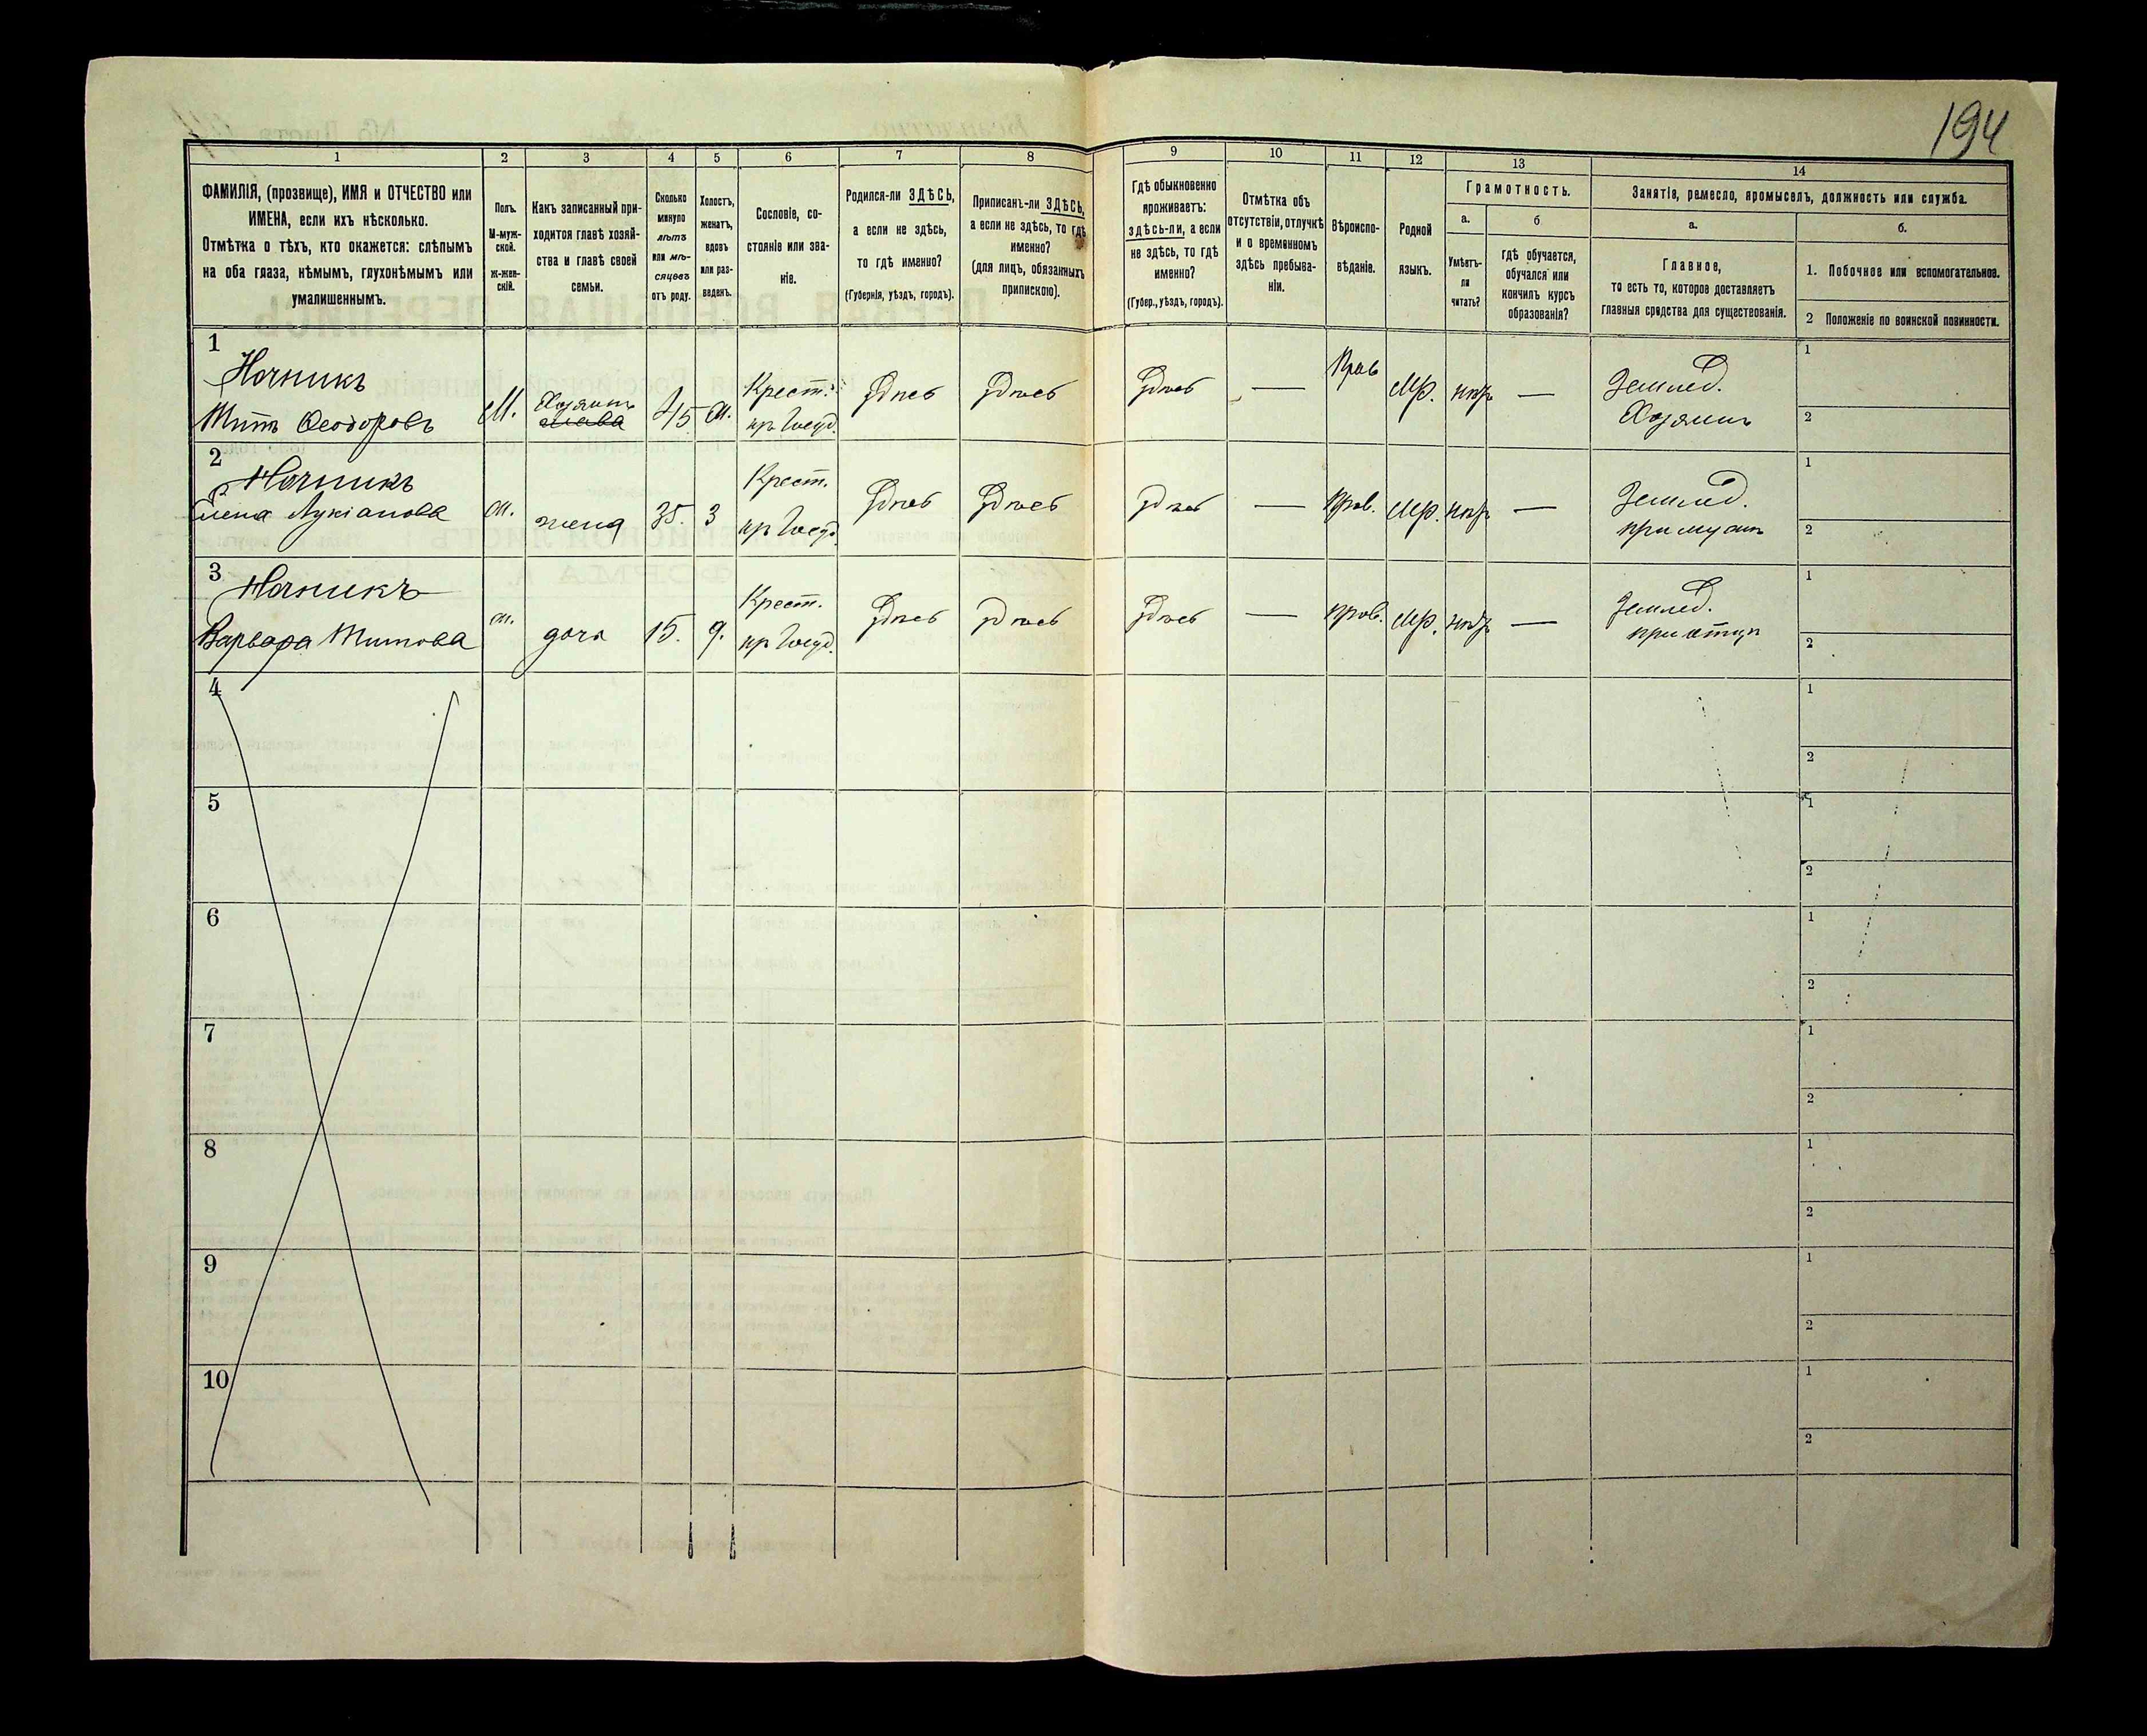 194
1
2
3
4
5
6
7
8
9
10
11
12
13
14
ФАМИЛІЯ, (прозвище), ИМЯ и ОТЧЕСТВО или
ИМЕНА, если ихъ нѣсколько.
Отмѣтка о тѣхъ, кто окажется: слѣпымъ
на оба глаза, нѣмымъ, глухонѣмымъ или
умалишеннымъ.
Полъ.
М-муж-
ской.
ж-жен-
скій.
Какъ записанный при-
ходится главѣ хозяй-
ства и главѣ своей
семьи.
Сколько
минуло
лѣтъ
или мѣ-
сяцевъ
отъ роду.
Холостъ,
женатъ,
вдовъ
или раз-
веденъ.
Сословіе, со-
стояніе или зва-
ніе.
Родился-ли ЗДѢСЬ,
а если не здѣсь,
то гдѣ именно?
(Губернія, уѣздъ, городъ).
Приписанъ-ли ЗДѢСЬ,
а если не здѣсь, то гдѣ
именно?
(для лицъ, обязанныхъ
припискою).
Гдѣ обыкновенно
проживаетъ:
здѣсь-ли, а если
не здѣсь, то гдѣ
именно?
(Губер., уѣздъ, городъ).
Отмѣтка объ
отсутствіи, отлучкѣ
и о временномъ
здѣсь пребыва-
ніи.
Вѣроиспо-
вѣданіе.
Родной
языкъ.
Грамотность.
а.
Умѣетъ-
ли
читать?
б
гдѣ обучается,
обучался или
кончилъ курсъ
образованія?
Занятія, ремесло, промыселъ, должность или служба.
а.
Главное,
то есть то, которое доставляетъ
главныя средства для существованія.
б.
1. Побочное или вспомогательное.
2 Положеніе по воинской повинности.
1
Ночникъ
Титъ Ѳеодоровъ
М.
Хозяинъ
45
Крест.
Здѣсь
Здѣсь
Здѣсь
—
Прав
Мр.
—
Землед.
Хозяинъ
1
2
2
Ночникъ
Лукіанова
жена
35.
Крест.
Здѣсь
Здѣсь
Здѣсь
—
Прав.
Мр.
—
Землед.
при мужѣ
1
2
3
Ночникъ
Варвара Титова
дочь
15.
Крест.
Здѣсь
Здѣсь
Здѣсь
—
Прав.
Мр.
—
Землед.
при отцѣ
1
2
4
1
2
5
1
2
6
1
2
7
1
2
8
1
2
9
1
2
10
1
2